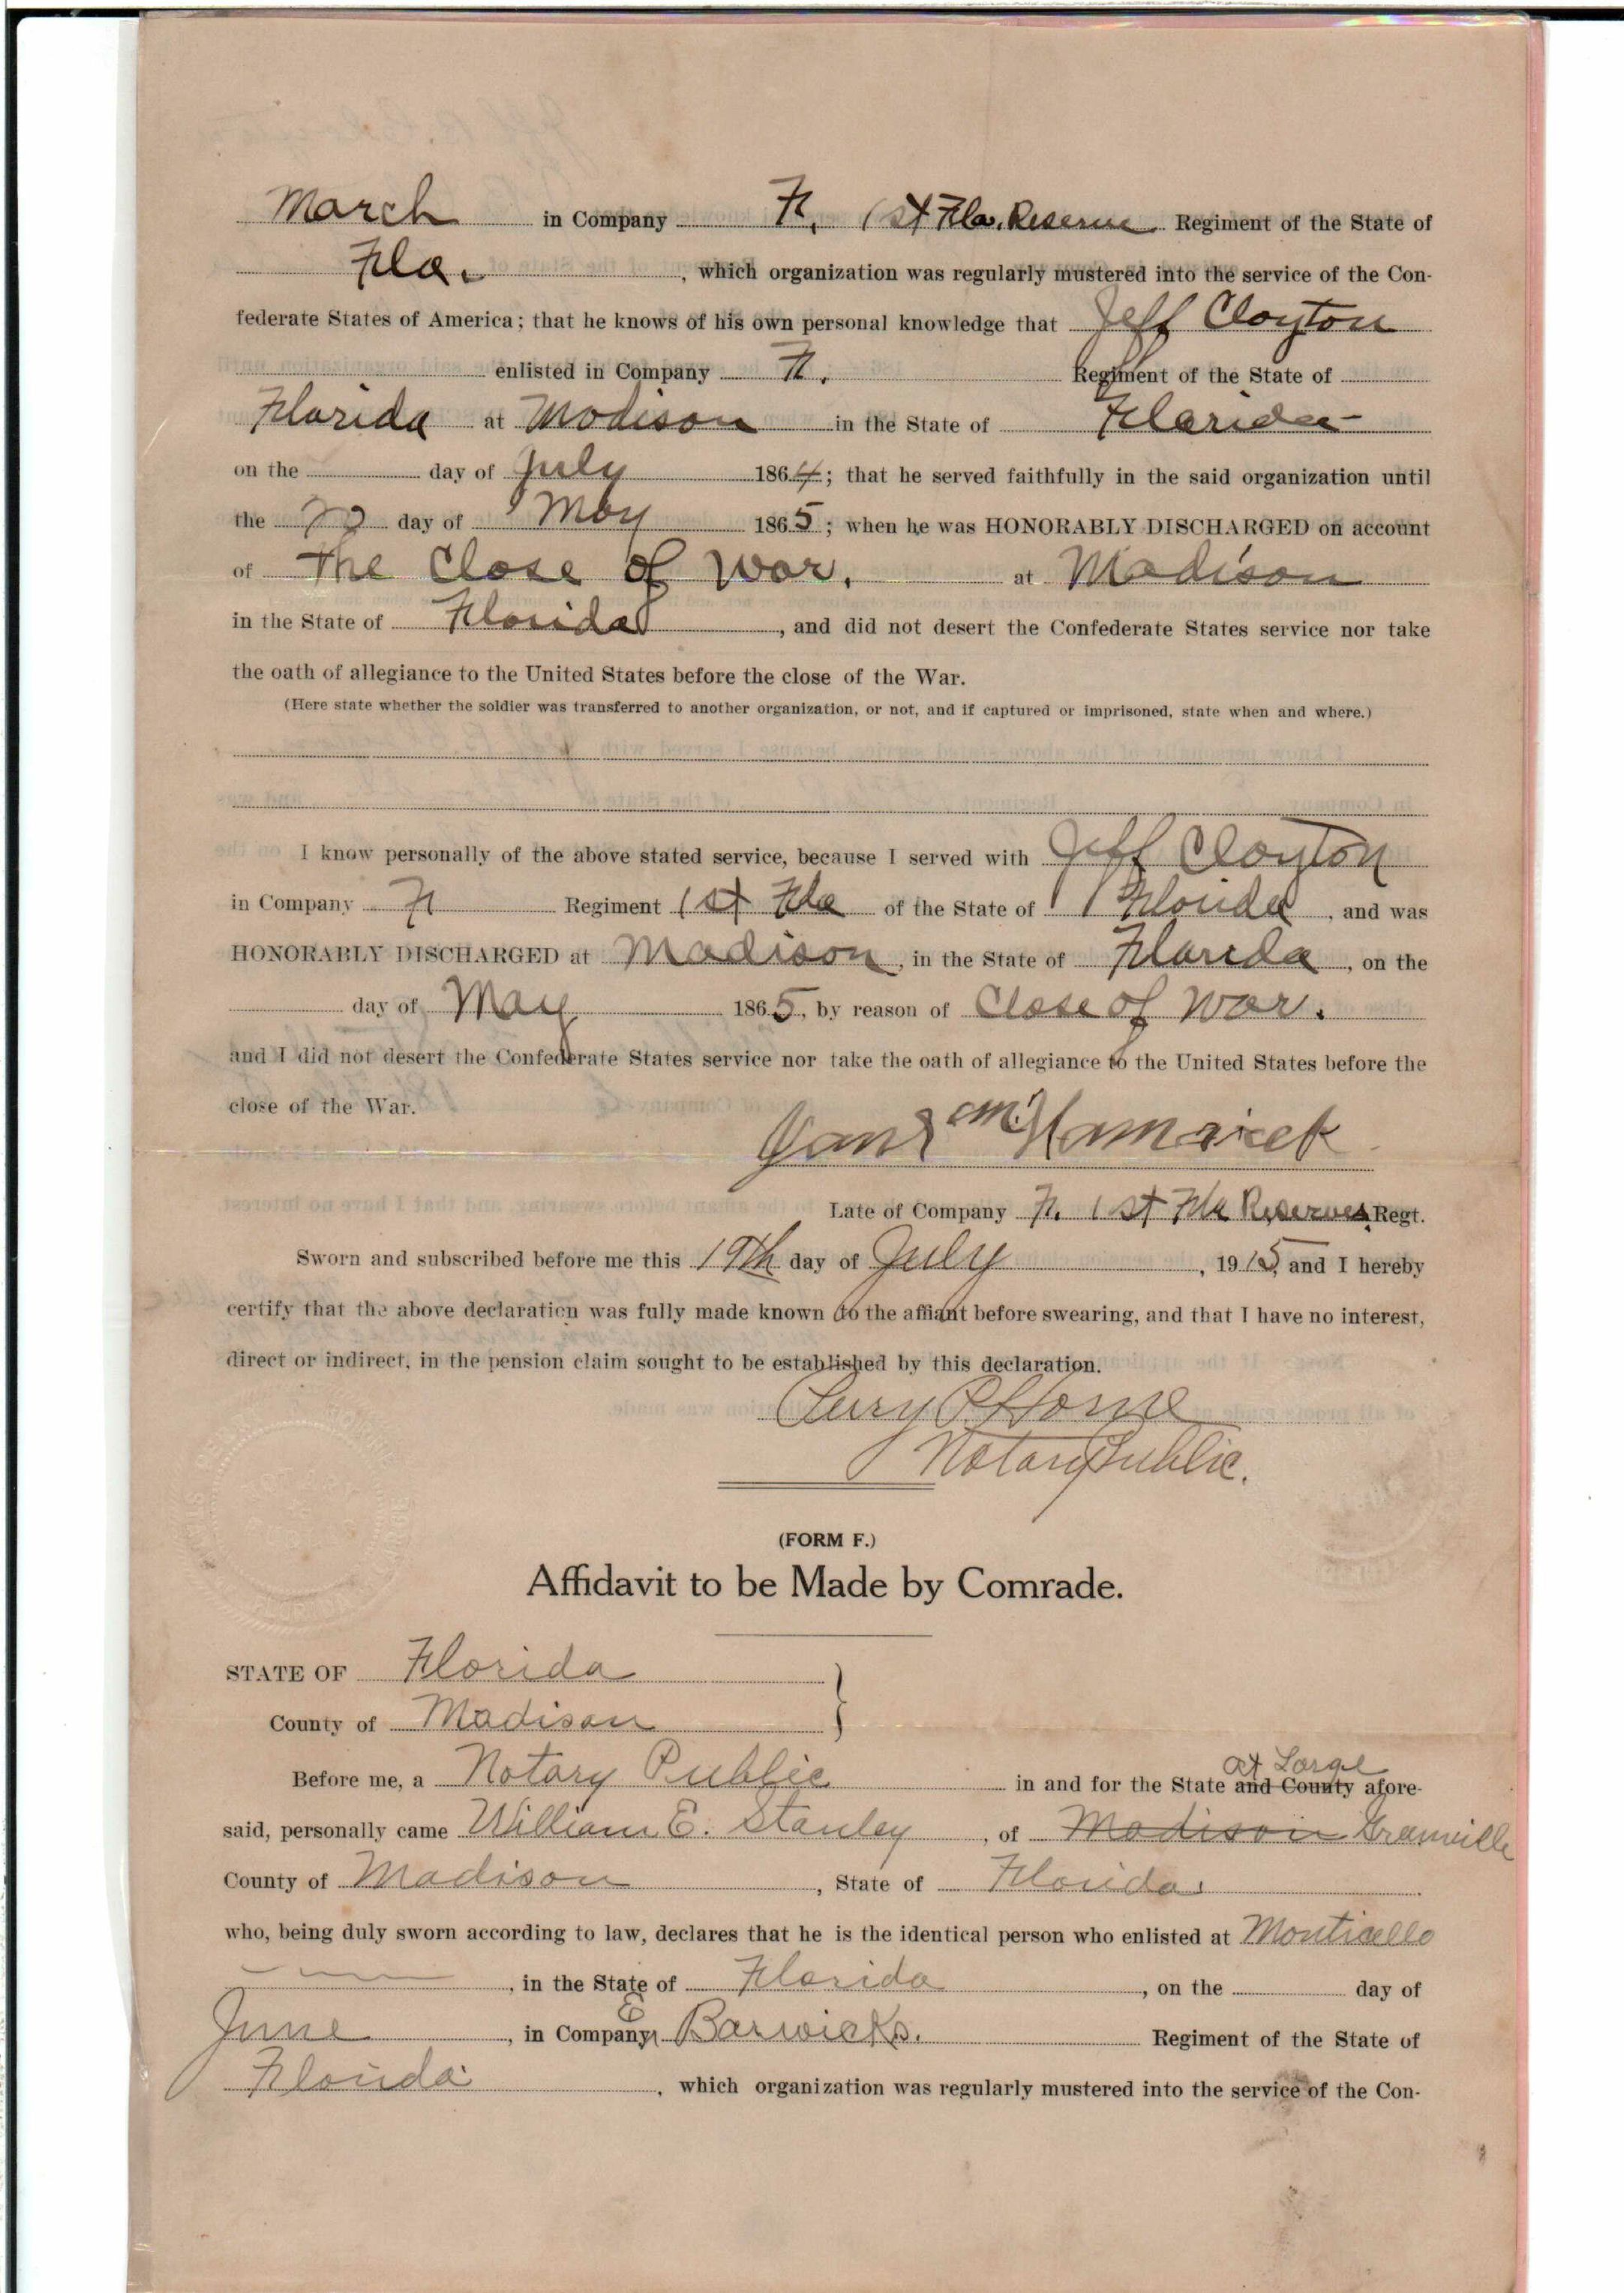 March in Company F, 1st Fla. Reserve Regiment of the State of
Fla. , which organization was regularly mustered into the service of the Con-
federate States of America; that he knows of his own personal knowledge that Jeff Clayton
enlisted in Company F. Regiment of the State of
Florida at Madison in the State of Florida
on the day of July 1864; that he served faithfully in the said organization until
the day of May 1865; when he was HONORABLY DISCHARGED on account
of The Close of War. at Madison
in the State of Florida , and did not desert the Confederate States service nor take
the oath of allegiance to the United States before the close of the War.
(Here state whether the soldier was transferred to another organization, or not, and if captured or imprisoned, state when and where.)
I know personally of the above stated service, because I served with Jeff Clayton
in Company F Regiment 1st Fla of the State of Florida , and was
HONORABLY DISCHARGED at Madison , in the State of Florida , on the
day of May 1865, by reason of Close of War.
and I did not desert the Confederate States service nor take the oath of allegiance to the United States before the
close of the War.
Late of Company F. 1st Fla Reserves Regt.
Sworn and subscribed before me this 19th day of July , 1915, and I hereby
certify that the above declaration was fully made known to the affiant before swearing, and that I have no interest,
direct or indirect, in the pension claim sought to be established by this declaration.
Notary Public.
(FORM F.)
Affidavit to be Made by Comrade.
STATE OF Florida
County of Madison
at Large
Before me, a Notary Public in and for the State and County afore-
said, personally came William E. Stanley , of Madison Greenville
County of Madison , State of Florida.
who, being duly sworn according to law, declares that he is the identical person who enlisted at Monticello
, in the State of Florida , on the day of
June , in Company E Barwicks. Regiment of the State of
Florida , which organization was regularly mustered into the service of the Con-